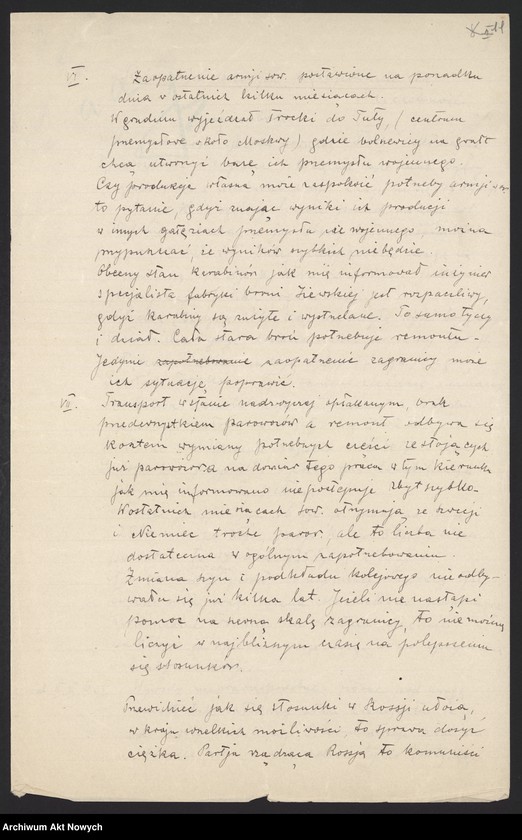 VI. Zaopatrzenie armji sow. postawione na porządku
dnia w ostatnich kilku miesiącach.
W grudniu wyjeżdżał Trocki do Tuły, (centrum
przemysłowe około Moskwy) gdzie bolszewicy na gwałt
chcą utworzyć bazę ich przemysłu wojennego.
Czy "produkcja własna" może zaspokoić potrzeby armji
to pytanie, gdyż znając wyniki ich produkcji
w innych gałęziach przemysłu nie wojennego, można
przypuszczać, że wyników szybkich nie będzie.
Obecny stan karabinów jak mię informował inżynier
specjalista fabryki broni Iżewskiej jest rozpaczliwy,
gdyż karabiny są zużyte i wystrzelane. To samo tyczy
i dział. Cała stara broń potrzebuje remontu.
Jedynie zapotrzebowanie zaopatrzenie zagranicy może
ich sytuację poprawić.
VII. Transport w stanie nadzwyczaj opłakanym, brak
przedewszystkiem parowozów a remont odbywa się
kosztem wymiany potrzebnych części ze stojących
już parowozów a na domiar tego praca w tym kierunku
jak mię informowano nie postępuje zbyt szybko.
W ostatnich miesiącach Sow. otrzymują ze Szwecji
i Niemiec trochę parow., ale to liczba nie
dostateczna w ogólnym zapotrzebowaniu.
Zmiana szyn i podkładu kolejowego nie odby-
wała się już kilka lat. Jeżeli nie nastąpi
pomoc na szerszą skalę zagranicy, to nie można
liczyć w najbliższym czasie na polepszenie
się stosunków.
Przewidzieć jak się stosunki w Rossji ułożą,
w kraju wszelkich możliwości, to sprawa dosyć
ciężka. Partja rządząca Rossją to komuniści
Archiwum Akt Nowych